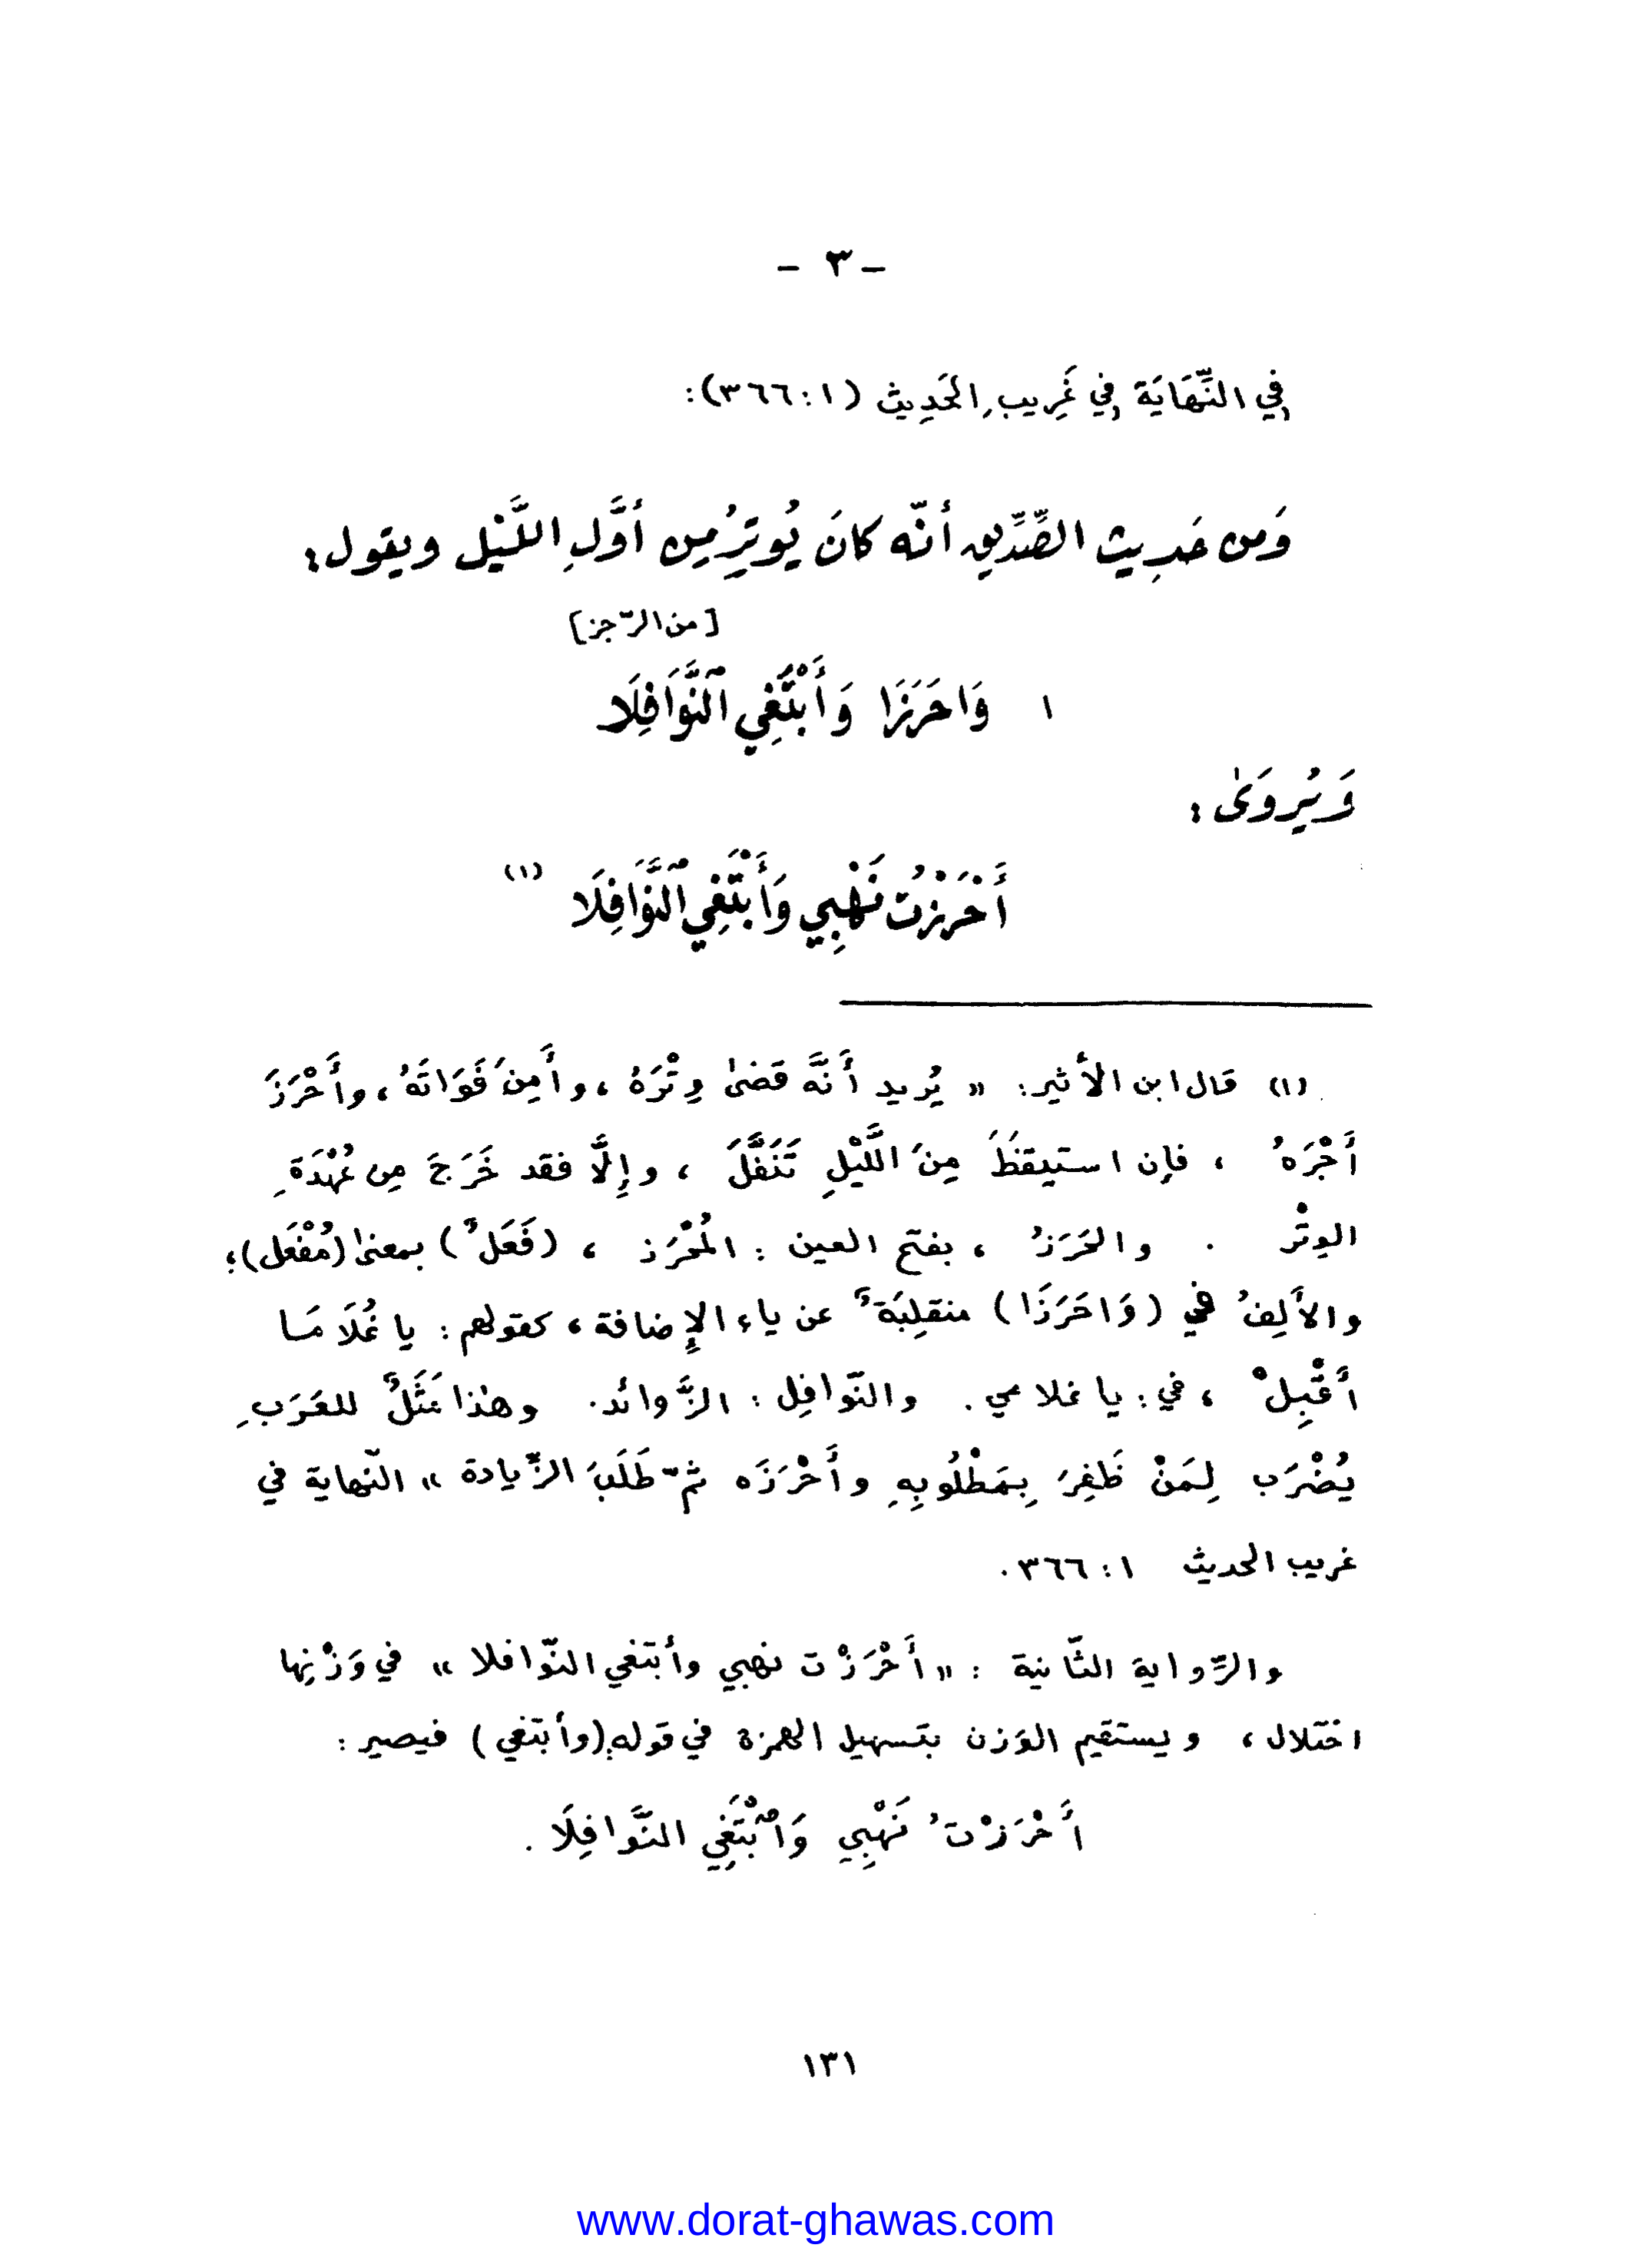 - ٣ -
فِي النِّهَايَة فِي غَرِيبِ الحَدِيث (١ : ٣٦٦):
وَمن حَدِيث الصِّدِّيقِ أنّه كانَ يُوتِرُ مِن أوَّلِ اللَّيْل ويقول:
[من الرّجز]
١ وَاحَرَزَا وَأَبْتَغِي ٱلنَّوَافِلَا
وَيُروَىٰ :
أَحْرَزْتُ نَهْبِي وَأَبْتَغِي ٱلنَّوَافِلَا (١)
(١) قال ابن الأثير: « يُريد أَنَّه قضىٰ وِتْرَهُ ، وأَمِنَ فَوَاتَهُ ، وأَحْرَزَ
أَجْرَهُ ، فإن استيقظَ مِنَ اللَّيْلِ تَنَفَّلَ ، وإِلَّا فقد خَرَجَ مِن عُهْدَةِ
الوِتْر . والحَرَزُ ، بفتح العين : المُحْرَز ، (فَعَلٌ) بمعنىٰ (مُفْعَل)؛
والألِفُ في (وَاحَرَزَا) منقلِبَةٌ عن ياء الإضافة ، كقولهم : يا غُلَامَا
أَقْبِلْ ، في : يا غلامي . والنّوَافِل : الزَّوائد. وهٰذا مَثَلٌ للعَرَبِ
يُضْرَب لِمَنْ ظَفِرَ بِمَطْلُوبِهِ وأَحْرَزَه ثمّ طَلَبَ الزّيادة » النّهاية في
غريب الحديث ١ : ٣٦٦ .
والرِّواية الثّانية : « أَحْرَزْت نهبي وأبتغي النّوافلا » في وَزْنِها
اختلال ، ويستقيم الوَزن بتسهيل الهمزة في قوله (وأبتغي) فيصير :
أَحْرَزْتُ نَهْبِي وَٱبْتَغِي النَّوافِلَا .
١٣١
www.dorat-ghawas.com